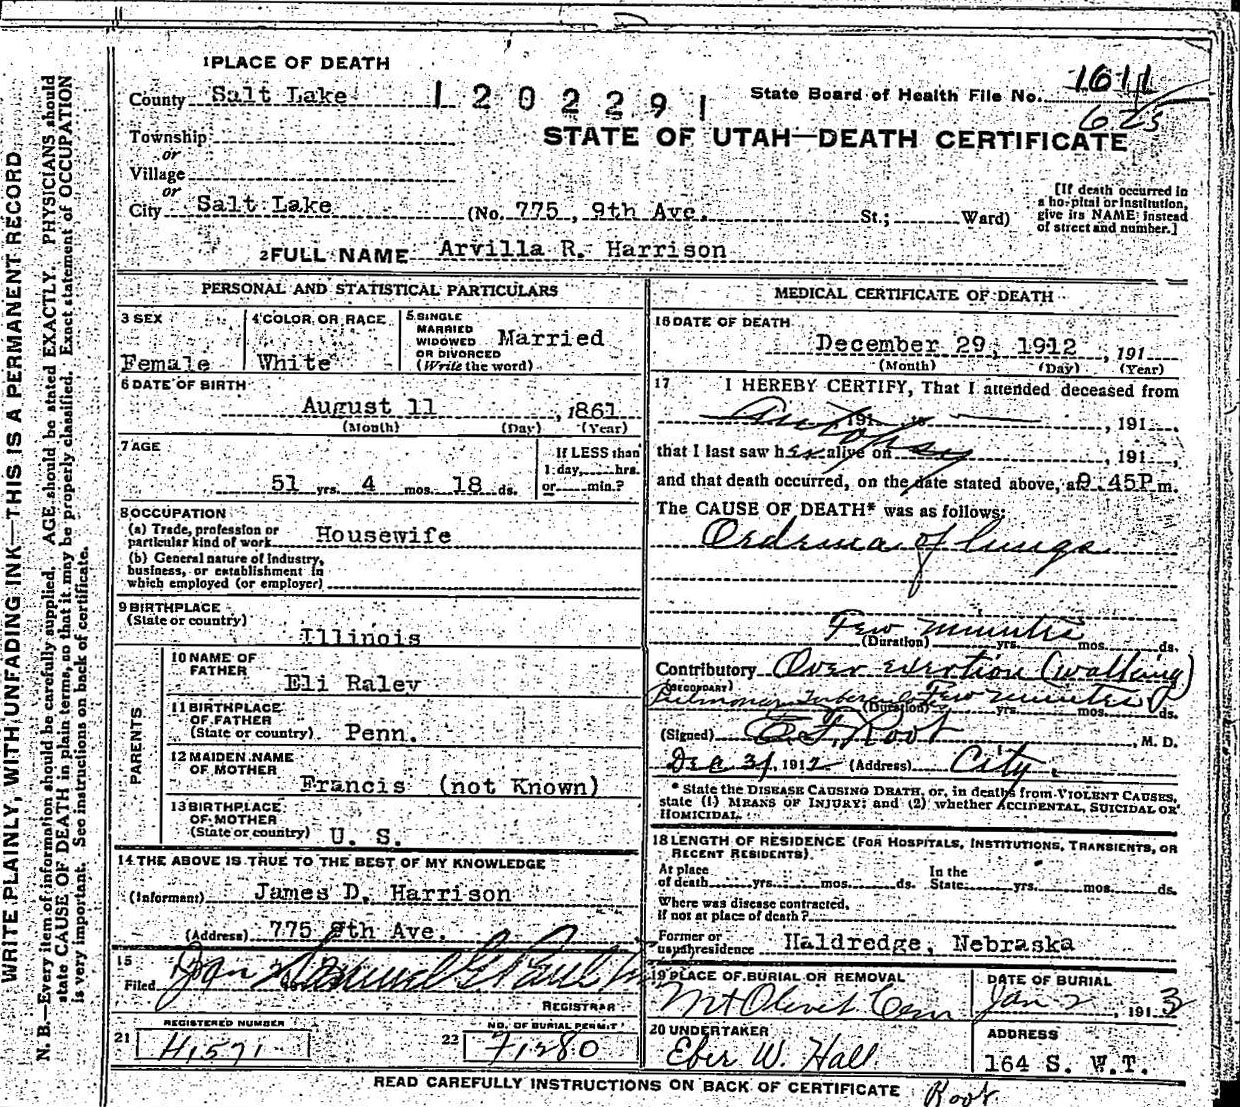 WRITE PLAINLY, WITH UNFADING INK—THIS IS A PERMANENT RECORD
N. B.—Every item of information should be carefully supplied. AGE should be stated EXACTLY. PHYSICIANS should
state CAUSE OF DEATH in plain terms, so that it may be properly classified. Exact statement of OCCUPATION
is very important. See instructions on back of certificate.
1 PLACE OF DEATH
County Salt Lake 1202291 State Board of Health File No. 1611
625
Township STATE OF UTAH—DEATH CERTIFICATE
or
Village
or
City Salt Lake (No. 775, 9th Ave. St.; Ward)
[If death occurred in
a hospital or institution,
give its NAME instead
of street and number.]
2 FULL NAME Arvilla R. Harrison
PERSONAL AND STATISTICAL PARTICULARS
3 SEX
Female
4 COLOR OR RACE
White
5 SINGLE
MARRIED
WIDOWED
OR DIVORCED
(Write the word)
Married
6 DATE OF BIRTH
August 11, 1861
(Month) (Day) (Year)
7 AGE
51 yrs. 4 mos. 18 ds.
If LESS than
1 day, hrs.
or min.?
8 OCCUPATION
(a) Trade, profession or
particular kind of work Housewife
(b) General nature of Industry,
business, or establishment in
which employed (or employer)
9 BIRTHPLACE
(State or country)
Illinois
PARENTS
10 NAME OF
FATHER
Eli Raley
11 BIRTHPLACE
OF FATHER
(State or country) Penn.
12 MAIDEN NAME
OF MOTHER
Francis (not Known)
13 BIRTHPLACE
OF MOTHER
(State or country) U. S.
14 THE ABOVE IS TRUE TO THE BEST OF MY KNOWLEDGE
(Informant) James D. Harrison
(Address) 775 9th Ave.
15
Filed Jan
REGISTRAR
REGISTERED NUMBER
21 H1571
NO. OF BURIAL PERMIT
22 71280
MEDICAL CERTIFICATE OF DEATH
16 DATE OF DEATH
December 29, 1912, 191
(Month) (Day) (Year)
17 I HEREBY CERTIFY, That I attended deceased from
191 to , 191 ,
Autopsy
that I last saw her alive on , 191 ,
and that death occurred, on the date stated above, at 9.45P m.
The CAUSE OF DEATH* was as follows:
Oedema of lungs
Few minutes
(Duration) yrs. mos. ds.
Contributory Over exertion (walking)
(SECONDARY)
Pulmonary Few minutes
(Duration) yrs. mos. ds.
(Signed) E. F. Root, M. D.
Dec 31, 1912 (Address) City.
* State the DISEASE CAUSING DEATH, or, in deaths from VIOLENT CAUSES,
state (1) MEANS OF INJURY; and (2) whether ACCIDENTAL, SUICIDAL OR
HOMICIDAL.
18 LENGTH OF RESIDENCE (FOR HOSPITALS, INSTITUTIONS, TRANSIENTS, OR
RECENT RESIDENTS).
At place
of death yrs. mos. ds.
In the
State yrs. mos. ds.
Where was disease contracted,
if not at place of death?
Former or
usual residence Haldredge, Nebraska
19 PLACE OF BURIAL OR REMOVAL
Mt Olivet Cem
DATE OF BURIAL
Jan 2, 1913
20 UNDERTAKER
Eber W. Hall
ADDRESS
164 S. W.T.
READ CAREFULLY INSTRUCTIONS ON BACK OF CERTIFICATE
Root